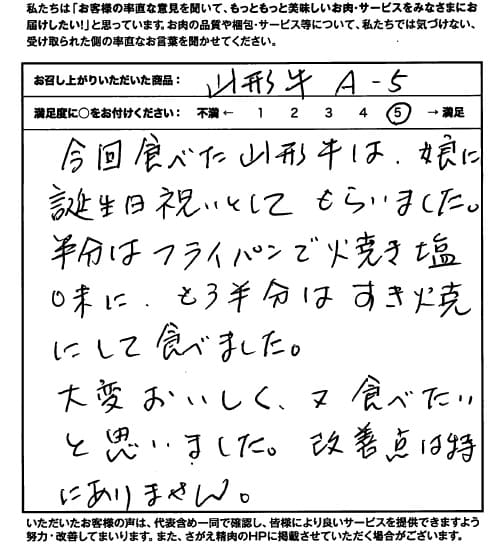 私たちは「お客様の率直な意見を聞いて、もっともっと美味しいお肉・サービスをみなさまにお
届けしたい！」と思っています。お肉の品質や梱包・サービス等について、私たちでは気づけない、
受け取られた側の率直なお言葉を聞かせてください。
お召し上がりいただいた商品： 山形牛 A-5
満足度に○をお付けください： 不満 ← 1 2 3 4 5 → 満足
今回食べた山形牛は、娘に
誕生日祝いとしてもらいました。
半分はフライパンで焼き塩
味に、もう半分はすき焼
にして食べました。
大変おいしく、又食べたい
と思いました。改善点は特
にありません。
いただいたお客様の声は、代表含め一同で確認し、皆様により良いサービスを提供できますよう
努力・改善してまいります。また、さがえ精肉のHPに掲載させていただく場合がございます。